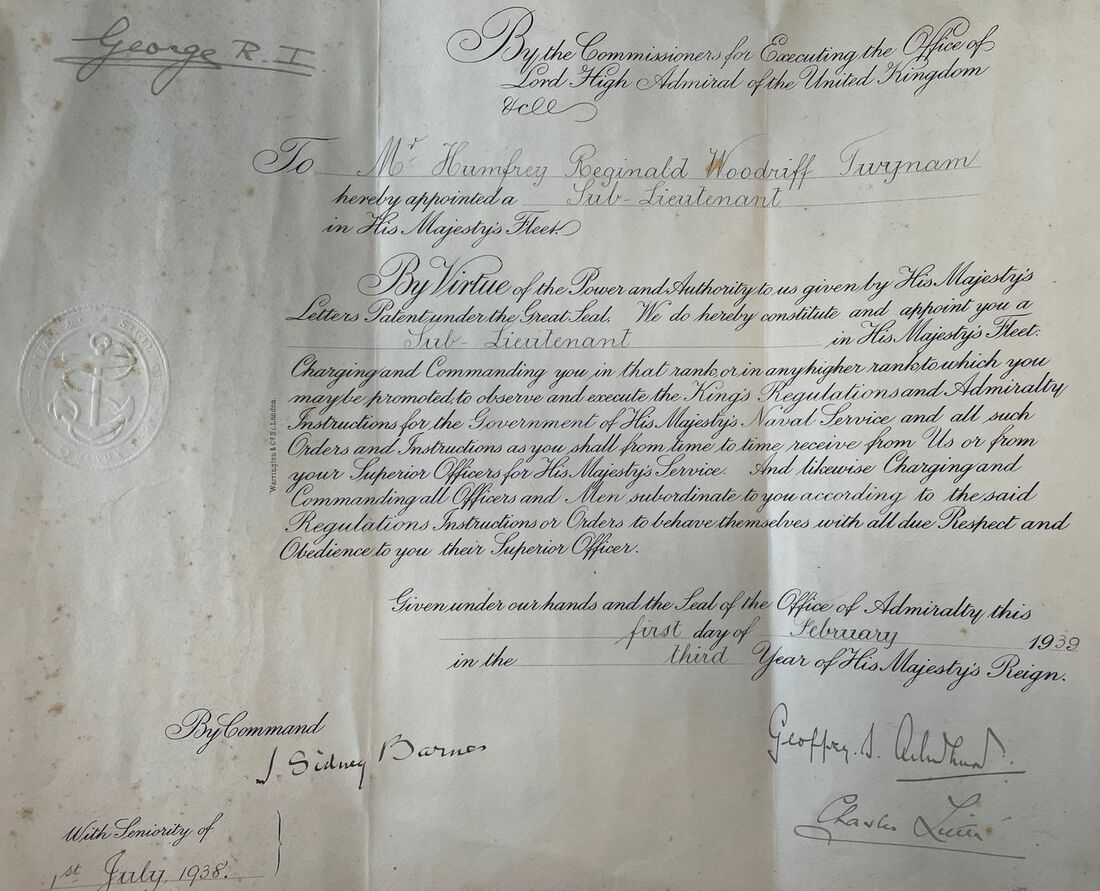 George R. I.
By the Commissioners for Executing the Office of
Lord High Admiral of the United Kingdom
&c
To Mr Humfrey Reginald Woodriff Twynam
hereby appointed a Sub-Lieutenant
in His Majesty's Fleet.
By Virtue of the Power and Authority to us given by His Majesty's
Letters Patent under the Great Seal. We do hereby constitute and appoint you a
Sub-Lieutenant in His Majesty's Fleet:
Charging and Commanding you in that rank, or in any higher rank to which you
may be promoted, to observe and execute the King's Regulations and Admiralty
Instructions for the Government of His Majesty's Naval Service and all such
Orders and Instructions as you shall from time to time receive from Us or from
your Superior Officers for His Majesty's Service. And likewise Charging and
Commanding all Officers and Men subordinate to you according to the said
Regulations Instructions or Orders to behave themselves with all due Respect and
Obedience to you their Superior Officer.
Warrington & Co. Sc. London.
Given under our hands and the Seal of the Office of Admiralty this
first day of February 1939
in the third Year of His Majesty's Reign.
By Command
J. Sidney Barnes
Geoffrey. S.
Charles
With Seniority of
1st July, 1938.